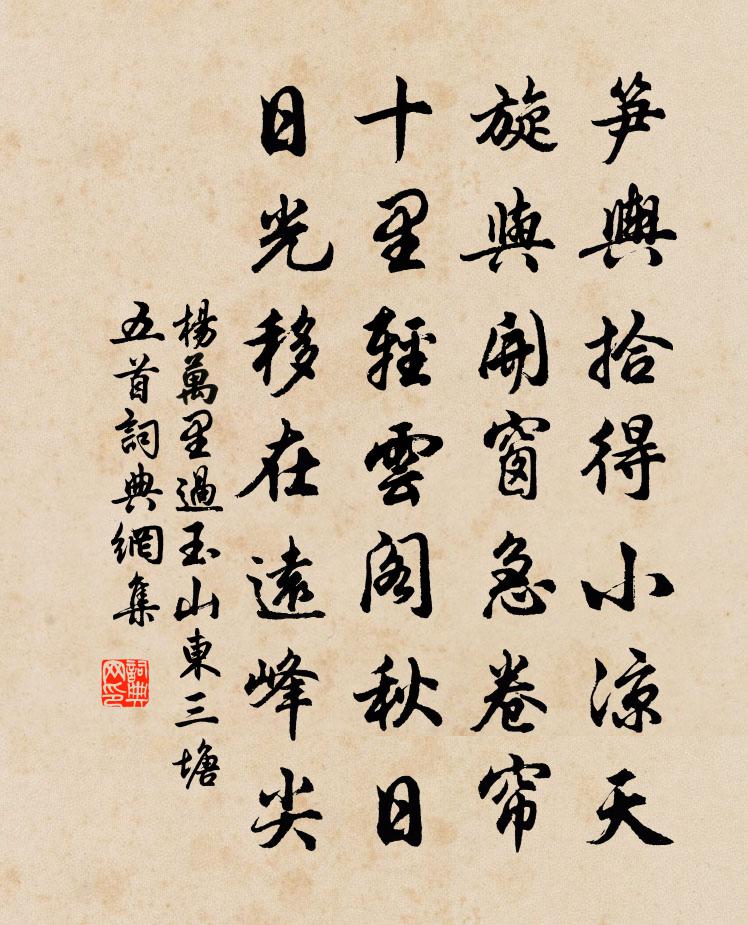 笋輿拾得小涼天
旋與開窗急卷帘
十里輕雲閣秋日
日光移在遠峰尖
楊萬里過玉山東三塘
五首詞典網集
詞典网印